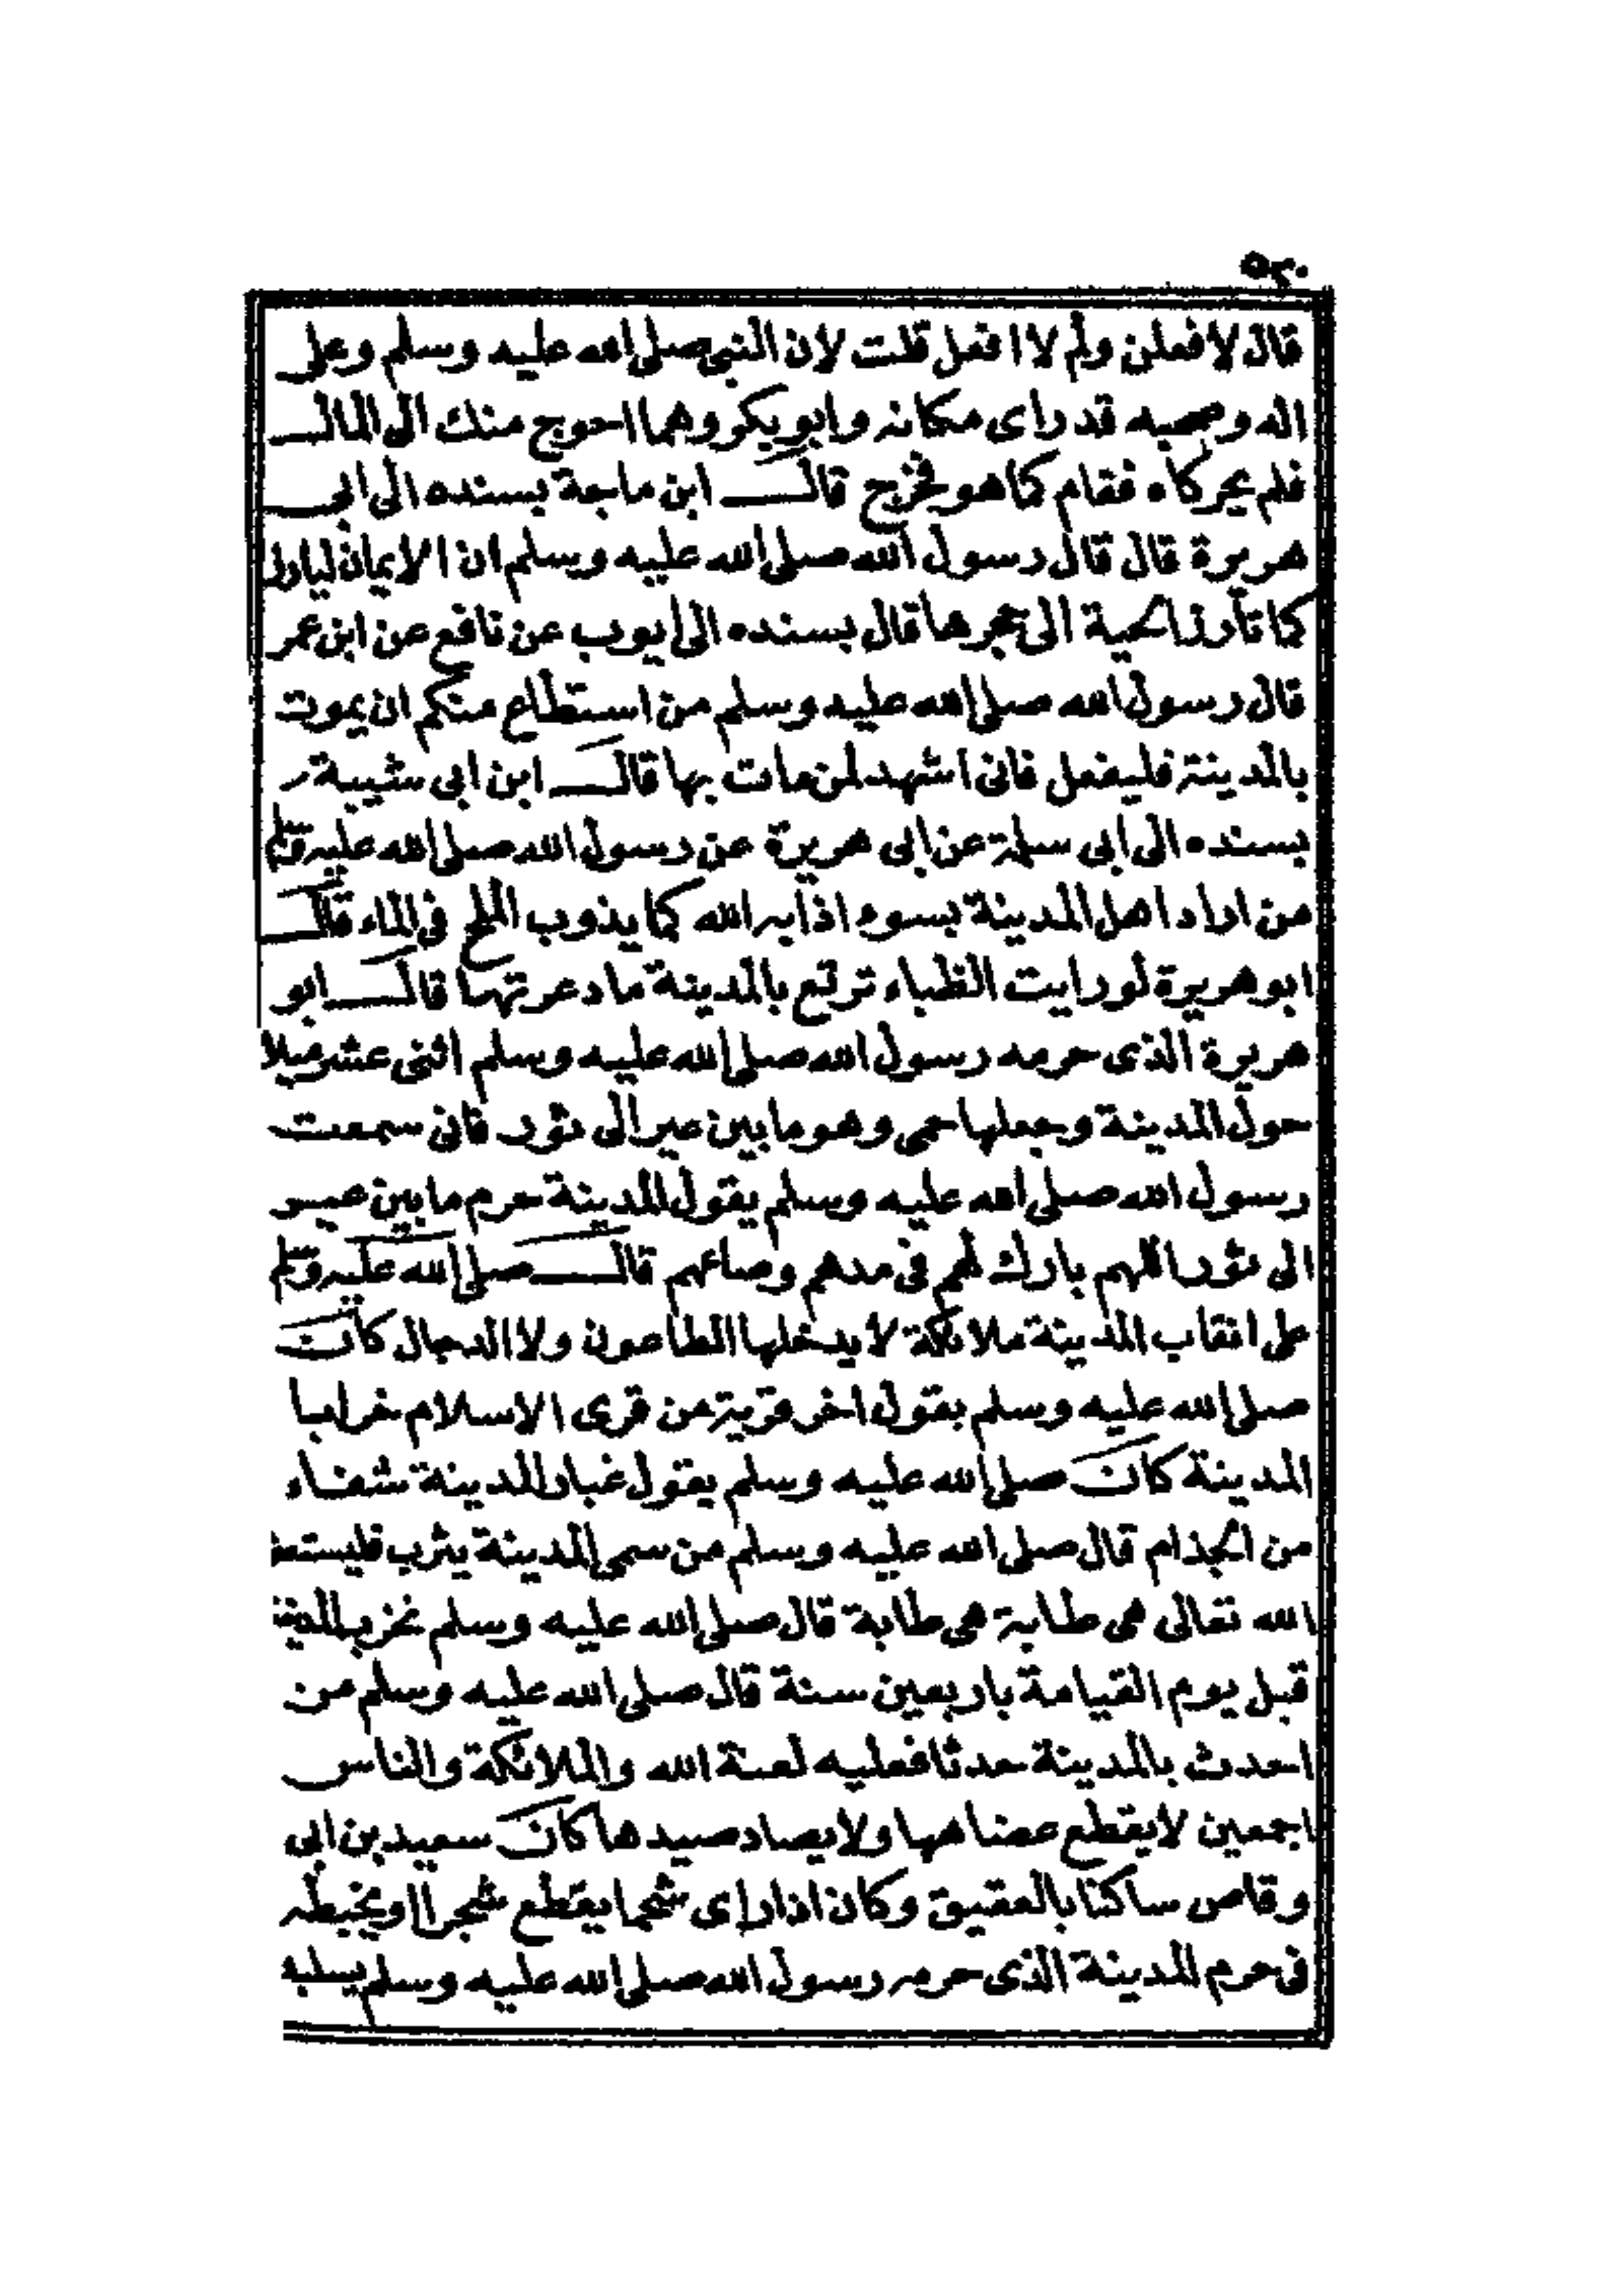 ٥٣٠
قال لافعلن ولم لا افعل قلت لان النبي صلى الله عليه وسلم وعلى
اله وصحبه قد راى مكانه وابو بكر وهما احوج منك الى المال
فلم يحركاه فقام كما هو فخرج قال ابن ماجة بسنده الى ابى
هريرة قال قال رسول الله صلى الله عليه وسلم ان الايمان ليارز
كما تأرز الحية الى حجرها قال بسنده الى ايوب عن نافع عن ابن عمر
قال رسول الله صلى الله عليه وسلم من استطاع منكم ان يموت
بالمدينة فليفعل فانى اشهد لمن مات بها قال ابن ابى شيبة
بسنده الى ابى سلمة عن ابى هريرة عن رسول الله صلى الله عليه وسلم
من اراد اهل المدينة بسوء اذابه الله كما يذوب الملح فى الماء قال
ابو هريرة لو رايت الظباء ترتع بالمدينة ما ذعرتها قال ابو
هريرة الذى حرمه رسول الله صلى الله عليه وسلم اثنى عشر ميلا
حول المدينة وجعلها حمى وهو ما بين عير الى ثور فانى سمعت
رسول الله صلى الله عليه وسلم يقول المدينة حرم ما بين عير
الى ثور اللهم بارك لهم فى مدهم وصاعهم قال صلى الله عليه وسلم
على انقاب المدينة ملائكة لا يدخلها الطاعون ولا الدجال كان
صلى الله عليه وسلم يقول اخر قرية من قرى الاسلام خرابا
المدينة كان صلى الله عليه وسلم يقول غبار المدينة شفاء
من الجذام قال صلى الله عليه وسلم من سمى المدينة يثرب فليستغفر
الله تعالى هى طابة هى طابة قال صلى الله عليه وسلم تخرب المدينة
قبل يوم القيامة باربعين سنة قال صلى الله عليه وسلم من
احدث بالمدينة حدثا فعليه لعنة الله والملائكة والناس
اجمعين لا يقطع عضاهها ولا يصاد صيدها كان سعيد بن ابى
وقاص ساكنا بالعقيق وكان اذا راى شخصا يقطع شجرا او يخبطه
فى حرم المدينة الذى حرمه رسول الله صلى الله عليه وسلم يسلبه